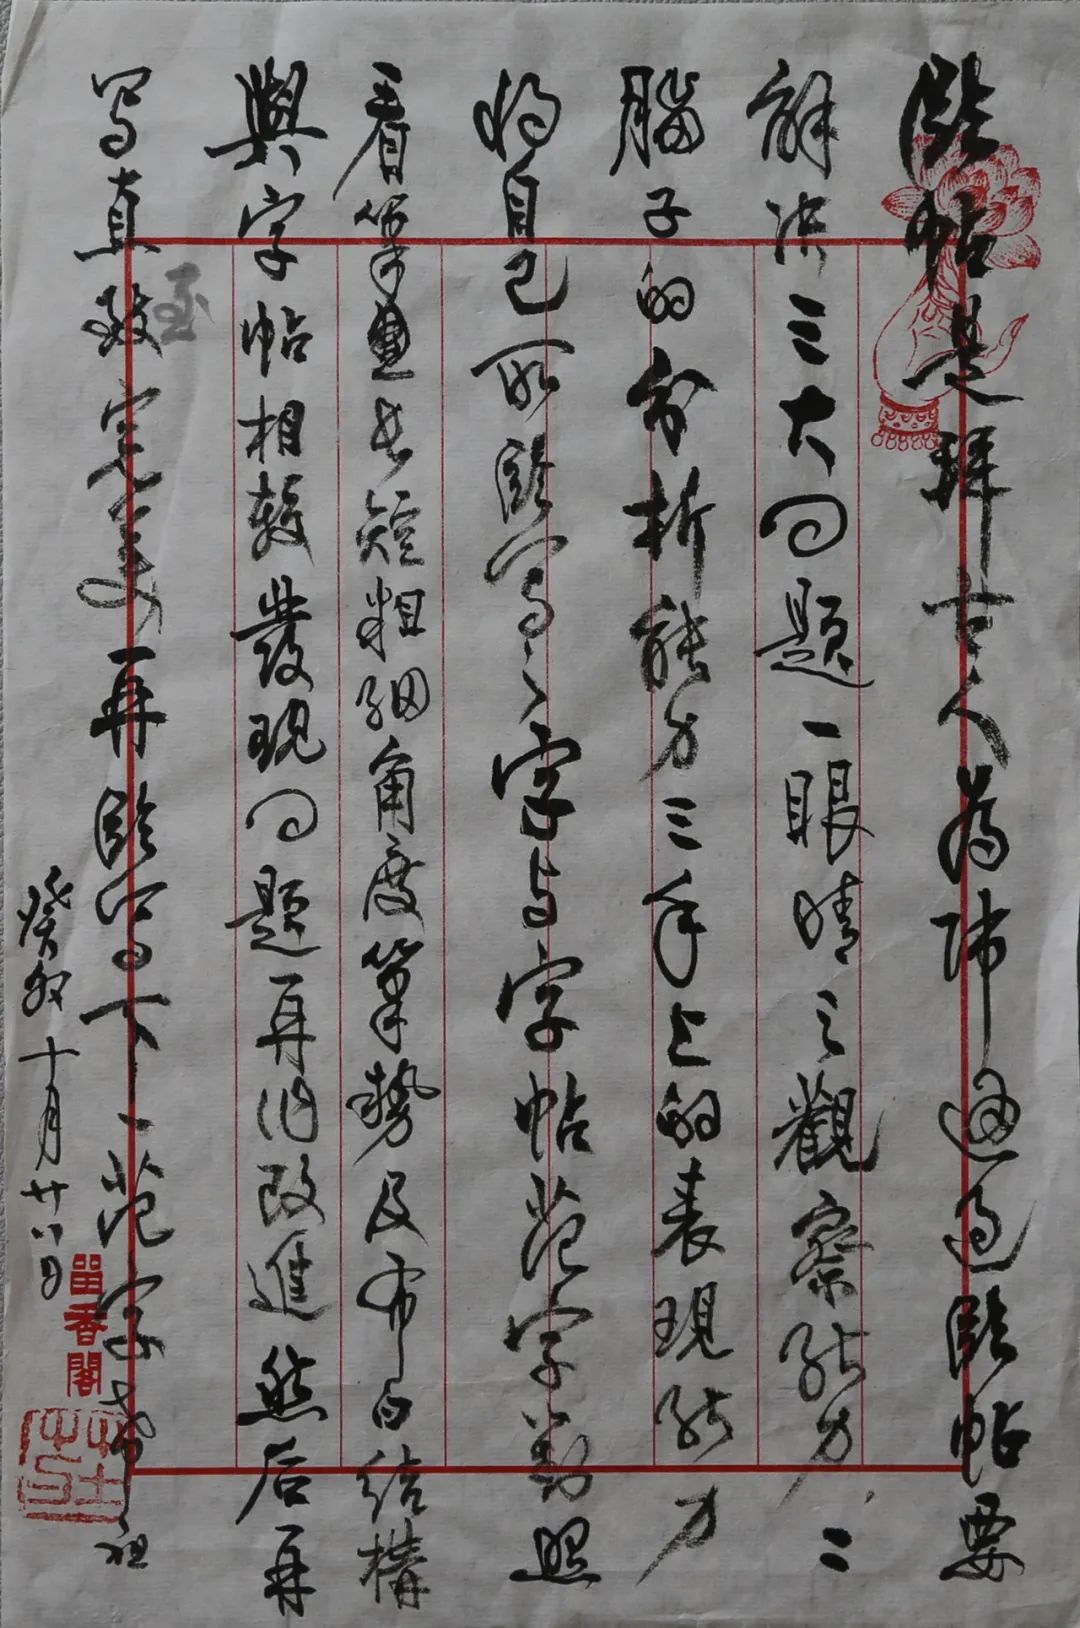 臨帖是拜古人為師通過臨帖要
解决三大问題一眼睛之觀察能力二
腦子的分析能力三手上的表現能力
将自己所臨写之字与字帖范字對照
看筆畫长短粗细角度筆勢及布白结構
與字帖相較發現问題再作改進然后再
写直致完美再臨写下一范字
至
癸卯十月廿八日
留香閣